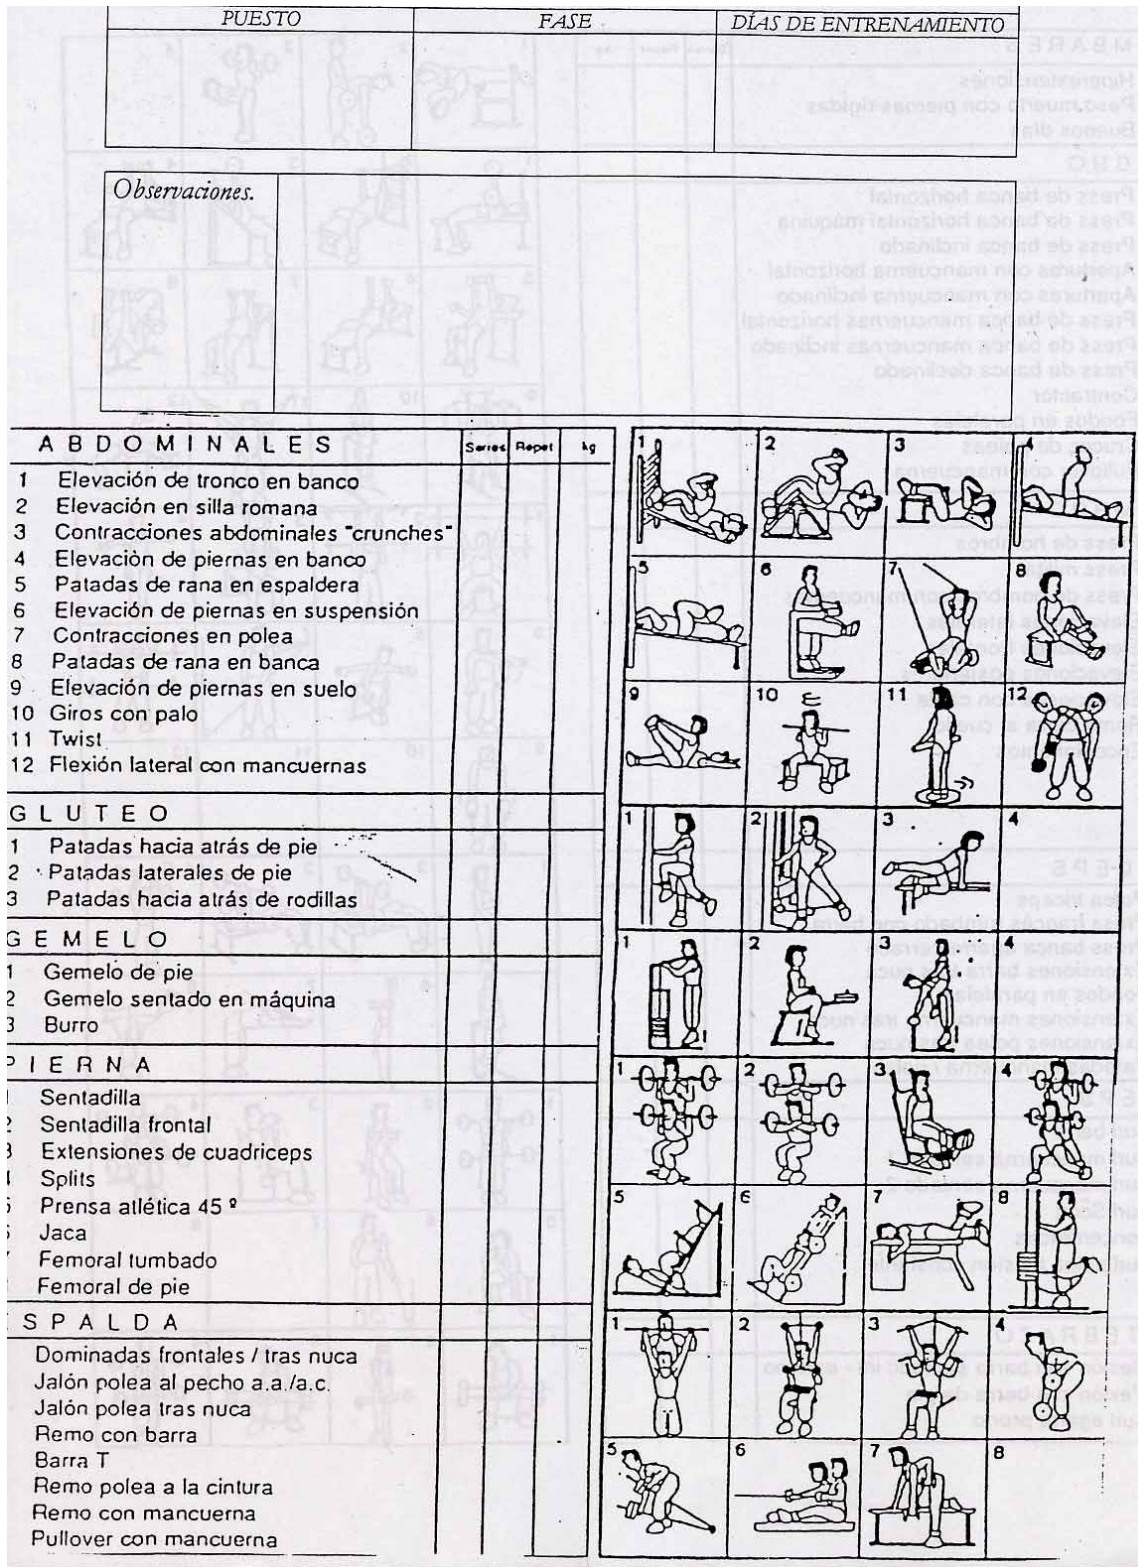 PUESTO FASE DÍAS DE ENTRENAMIENTO
Observaciones.
ABDOMINALES Series Repet kg
1 Elevación de tronco en banco
2 Elevación en silla romana
3 Contracciones abdominales "crunches"
4 Elevación de piernas en banco
5 Patadas de rana en espaldera
6 Elevación de piernas en suspensión
7 Contracciones en polea
8 Patadas de rana en banca
9 Elevación de piernas en suelo
10 Giros con palo
11 Twist
12 Flexión lateral con mancuernas
1 2 3 4
5 6 7 8
9 10 11 12
GLUTEO
1 Patadas hacia atrás de pie
2 Patadas laterales de pie
3 Patadas hacia atrás de rodillas
1 2 3 4
GEMELO
1 Gemelo de pie
2 Gemelo sentado en máquina
3 Burro
1 2 3 4
PIERNA
Sentadilla
2 Sentadilla frontal
3 Extensiones de cuadriceps
Splits
5 Prensa atlética 45 º
Jaca
Femoral tumbado
Femoral de pie
1 2 3 4
5 6 7 8
SPALDA
Dominadas frontales / tras nuca
Jalón polea al pecho a.a./a.c.
Jalón polea tras nuca
Remo con barra
Barra T
Remo polea a la cintura
Remo con mancuerna
Pullover con mancuerna
1 2 3 4
5 6 7 8